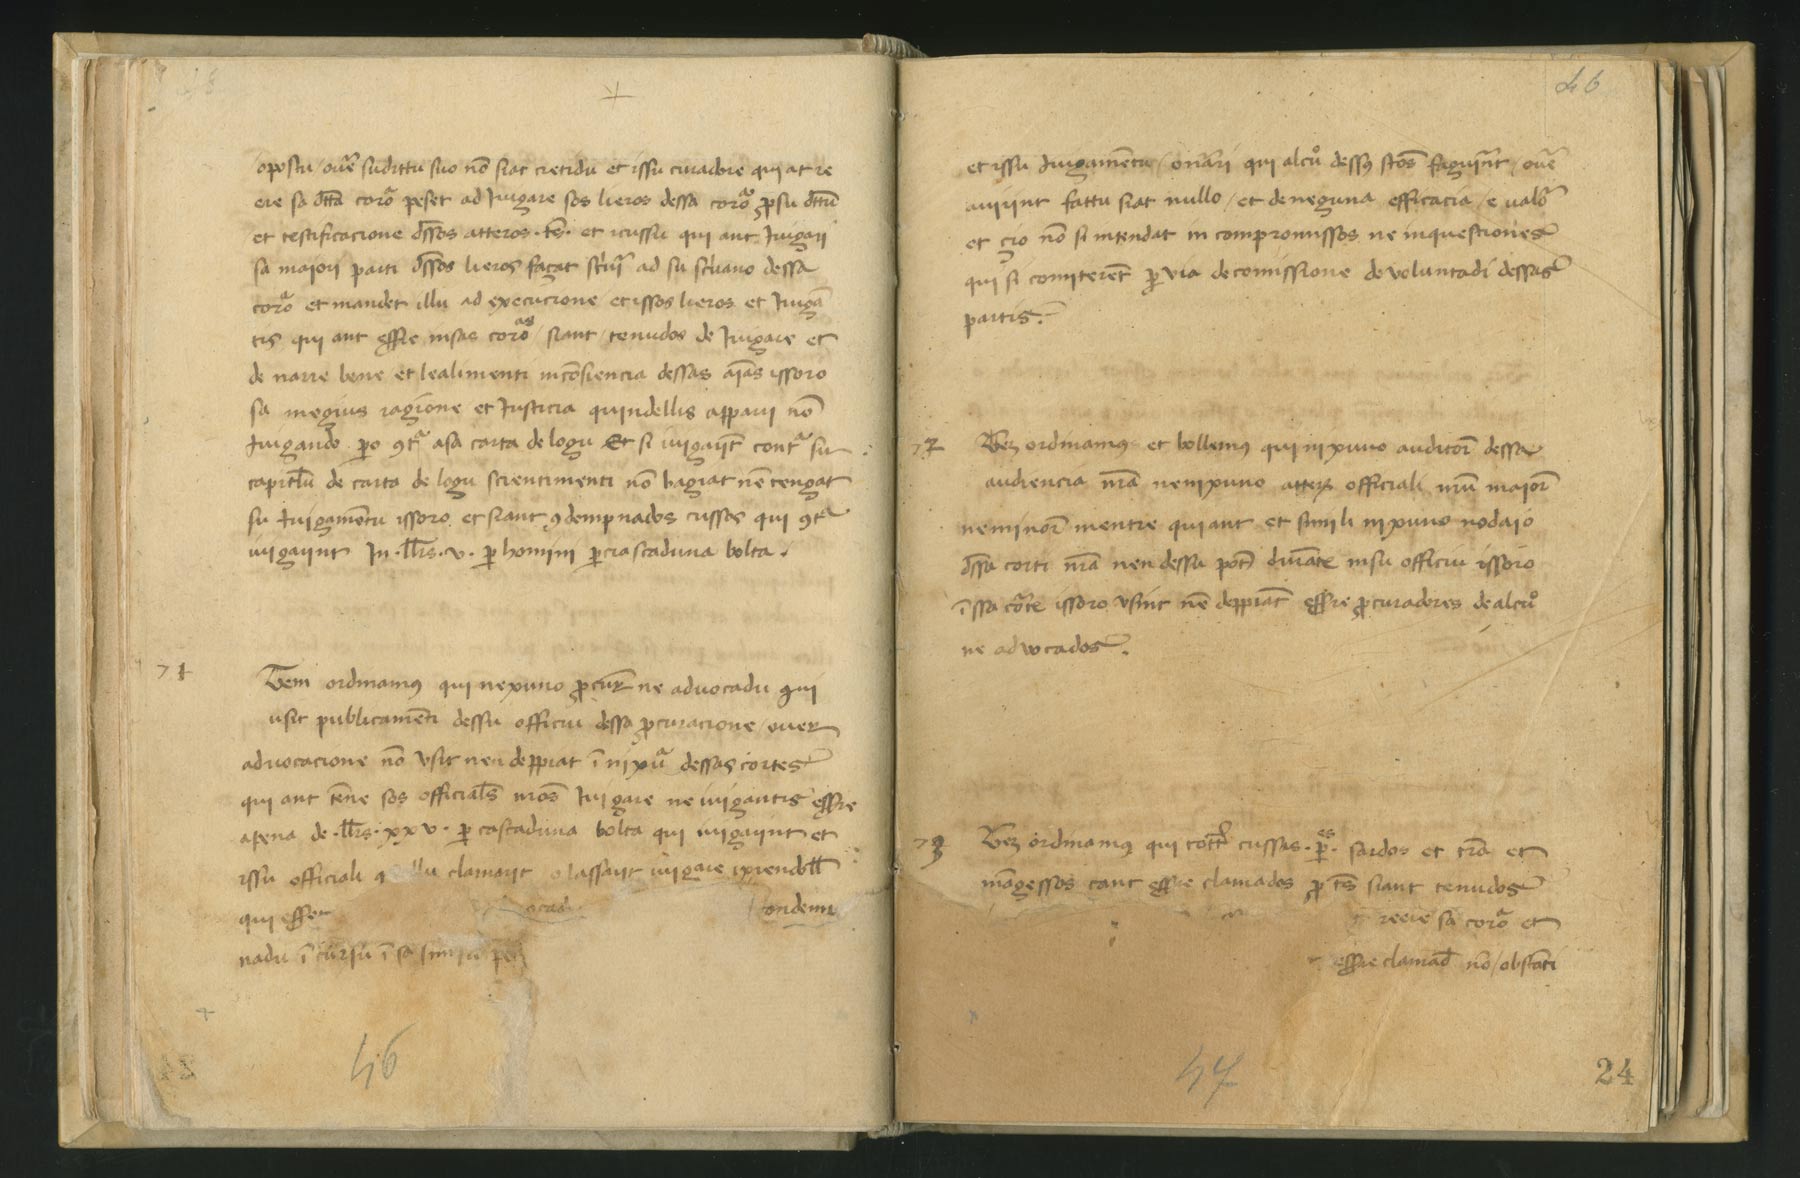 opostu / over̃ su dittu suo nõ siat cretidu et issu curadore qui at re
ere sa ditta corõa peser ad Iuigare sos lieros dessa corõa ꝑ su dittu
et testificacione dessos atteros . ts̃ . et icussu qui ant Iuigari
sa maiori parti dessos lieros façat scriũ ad su scriuano dessa
corõa et mandet illu ad execucione et issos lieros et Iuigã
tis qui ant esser in sas corõas / siant / tenudos de Iuigare et
de narre bene et lealimenti in cõsiencia dessas aĩas issoro
sa megius ragione et Iusticia qui ndellis apparit nõ
Iuigando pero 9tra a sa carta de logu Et si iuigarĩt contra su
capitlũ de carta de logu scientimenti nõ bagiat nẽ tengat
su Iuigamẽtu issoro et siant 9dempnados cussos qui 9tra
iuigarint In . llrs . v . ꝑ homini ꝑ ciascaduna bolta .
71
Item ordinamus qui nexuno ꝓcur̃ ne advocadu qui
usit publicamẽti dessu officiu dessa ꝓcuracione / ouer
advocacione nõ usit nen deppiat ĩ nixũa dessas cortes
qui ant tẽne sos officiales nros̃ Iuigare ne iuigantis esser̃e
a pena de . llrs . xxv . ꝑ cascaduna bolta qui iuigarint et
issu officiali q llu clamarit o lassarit iuigare ixiendoll
qui esser ocad ondemp
nadu ĩ cussu ĩ sa simili pen
46
46
et issu Iuigamẽtu / onari qui alcũo dessos sc̃os faguirĩt / ouẽ
auirint fattu siat nullo / et de neguna efficacia / e ualor̃
et çio nõ si intendat in compromissos ne in questiones
qui si comiterent ꝑ via de comissione de voluntadi dessas
partis .
72
Item ordinamus et bollemus qui nixuno auditor̃ dessa
audiencia nr̃a ne nixuno atteru officiali nr̃u maior̃
ne minor̃ mentre qui ant et simili nixuno nodaio
dessa corti nr̃a nen dessa pot̃ durãte in su officiu issoro
ĩ ssa cõrte issoro usint nẽ deppiant esser̃e ꝓcuradores de alcũo
ne advocados .
73
Item ordinamus qui tott cussas . ꝑes . sardos et tr̃a et
mãgessos cant esser̃e clamados ꝑ ts̃ siant tenudos
reere sa corõa et
esser̃e clamad̃ nõ / obstãti
47
24